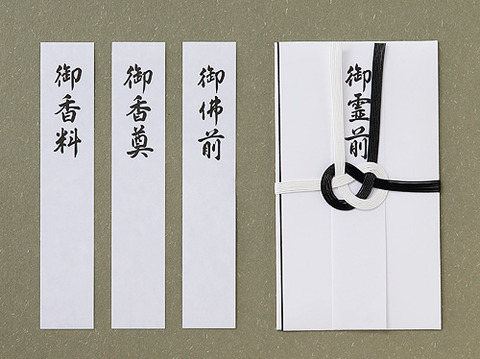 御霊前
御佛前
御香奠
御香料